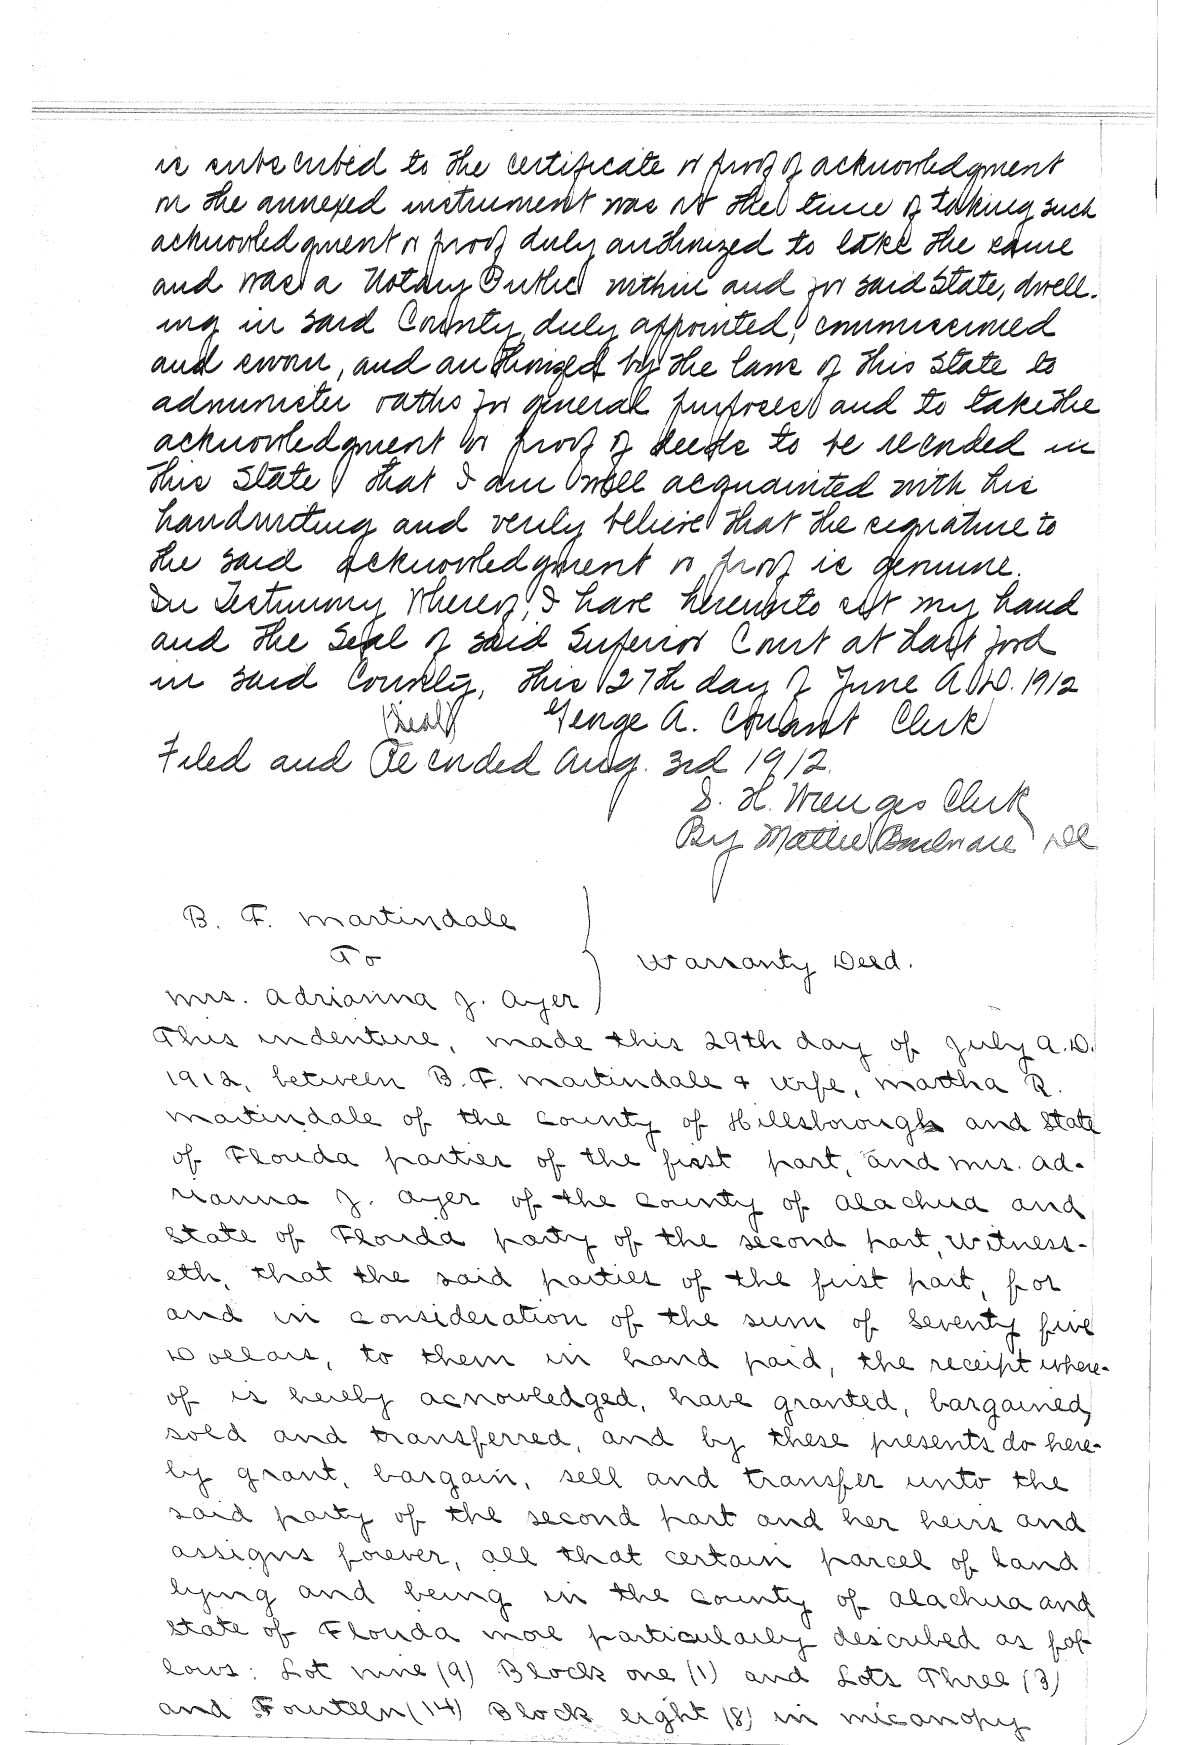 is subscribed to the certificate or proof of acknowledgment
on the annexed instrument was at the time of taking such
acknowledgment or proof duly authorized to take the same
and was a Notary Public within and for said State, dwell-
ing in said County, duly appointed, commissioned
and sworn, and authorized by the laws of this State to
administer oaths for general purposes and to take the
acknowledgment or proof of deeds to be recorded in
this State, that I am well acquainted with his
handwriting and verily believe that the signature to
the said acknowledgment or proof is genuine.
In Testimony Whereof, I have hereunto set my hand
and the Seal of said Superior Court at Hartford
in said County, this 27th day of June A.D. 1912
(Seal) George A. Conant Clerk
Filed and Recorded Aug. 3rd 1912.
S. H. Wienges Clerk
By Mattie DC
B. F. Martindale
To
Warranty Deed.
Mrs. Adrianna J. Ayer
This indenture, made this 29th day of July A.D.
1912, between B. F. Martindale & wife, Martha R.
Martindale of the County of Hillsborough and State
of Florida parties of the first part, and Mrs. Ad-
rianna J. Ayer of the County of Alachua and
State of Florida party of the second part, Witness-
eth, that the said parties of the first part, for
and in consideration of the sum of Seventy five
Dollars, to them in hand paid, the receipt where-
of is hereby acnowledged, have granted, bargained,
sold and transferred, and by these presents do here-
by grant, bargain, sell and transfer unto the
said party of the second part and her heirs and
assigns forever, all that certain parcel of land
lying and being in the County of Alachua and
State of Florida more particularly described as fol-
lows: Lot nine (9) Block one (1) and Lots Three (3)
and Fourteen (14) Block eight (8) in Micanopy